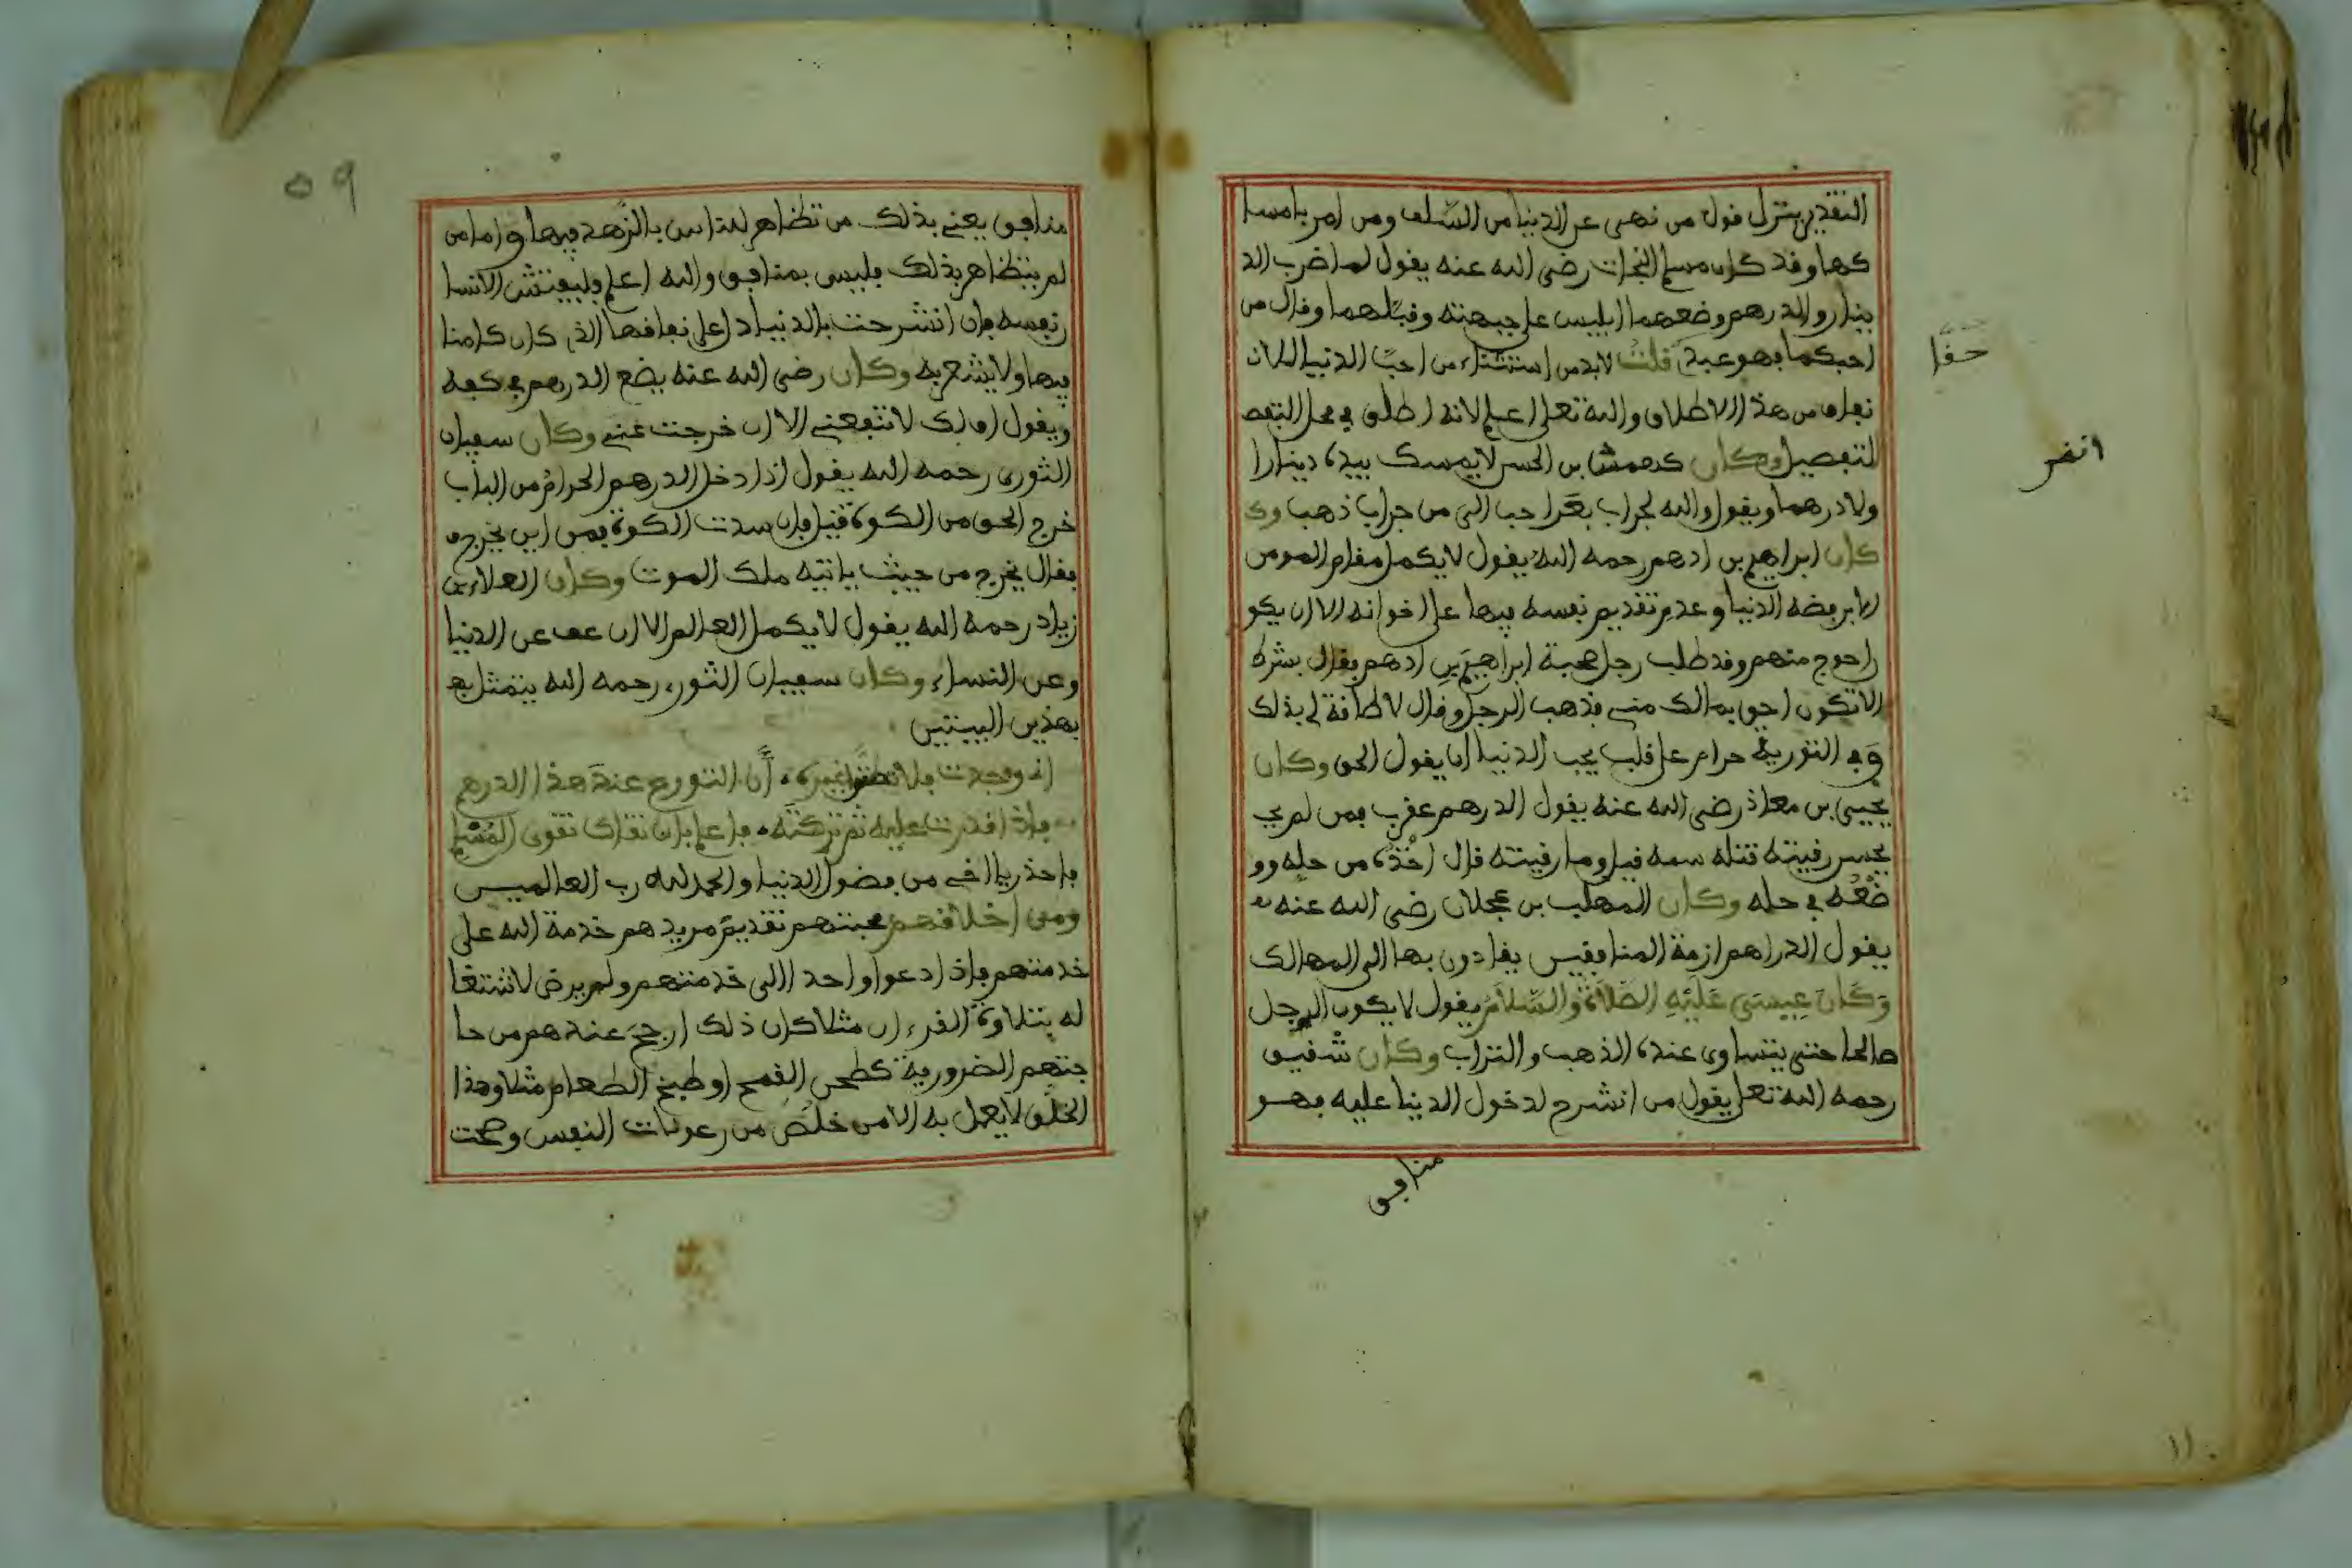 التقدير يتنزل قول من نهى عن الدنيا من السّلف ومن امر بامسا
كها وقد كان مسلم النجات رضي الله عنه يقول لما ضرب الد
ينار والدرهم وضعهما ابليس على جبهته وقبّلهما وقال من
احبكما فهو عبدي قلت لابد من استثناء من احبّ الدنيا للان
نفاق من هذا الاطلاق والله تعلى اعلم لانه اطلق في محل التفص
لتفصيل وكان كهمش بن الحسن لا يمسك بيده دينارا
ولا درهما ويقول والله لجراب بعر احب الي من جراب ذهب وك
كان ابراهيم بن ادهم رحمه الله يقول لا يكمل مقام المومن
الا برفضه الدنيا وعدم تقديم نفسه فيها على اخوانه الا ان يكو
احوج منهم وقد طلب رجل صحبة ابراهيم بن ادهم فقال بشرط
الا تكون احق بمالك مني فذهب الرجل وقال لا طاقة لي بذلك
وفي التورية حرام على قلب يحب الدنيا ان يقول الحق وكان
يحيى بن معاذ رضي الله عنه يقول الدرهم عقرب فمن لم يح
يحسن رقيته قتله سمه قيل وما رقيته قال اخذه من حله وو
ضعه في حله وكان المهلب بن عجلان رضي الله عنه
يقول الدراهم ازمة المنافقين يقادون بها الى المهالك
وكان عيسى عليه الصلاة والسلام يقول لا يكون الرجل
صالحا حتى يتساوى عنده الذهب والتراب وكان شقيق
رحمه الله تعلى يقول من انشرح لدخول الدنيا عليه فهو
منافق
حقا
انضر
٥٩
منافق يعني بذلك من تظاهر للناس بالزهد فيها واما من
لم يتظاهر بذلك فليس بمنافق والله اعلم وليفتش الانسا
نفسه فان انشرحت بالدنيا دل على نفاقها الذي كان كامنا
فيها ولا يشعر به وكان رضي الله عنه يضع الدرهم في كفه
ويقول اف لك لا تنفعني الا ان خرجت عني وكان سفيان
الثوري رحمه الله يقول اذا دخل الدرهم الحرام من الباب
خرج الحق من الكوة قيل فان سدت الكوة فمن اين يخرج
فقال يخرج من حيث ياتيه ملك الموت وكان العلاء بن
زياد رحمه الله يقول لا يكمل العالم الا ان عف عن الدنيا
وعن النساء وكان سفيان الثوري رحمه الله يتمثل به
بهذين البيتين
اني وجدت فلا تظنوا غيره أن التورع عند هذا الدرهم
فاذا قدرت عليه ثم تركته فاعلم بان تقاك تقوى المسلم
فاحذر يا اخي من فضول الدنيا والحمد لله رب العالمين
ومن اخلاقهم محبتهم تقديم مريدهم خدمة الله على
خدمتهم فاذا دعوا واحدا الى خدمتهم ولم يرض لاشتغا
له بتلاوة القرءان مثلا كان ذلك ارجح عندهم من حا
جتهم الضرورية كطحن القمح او طبخ الطعام مثلا وهذا
الخلق لا يعمل به الا من خلص من رعونات النفس وصحت